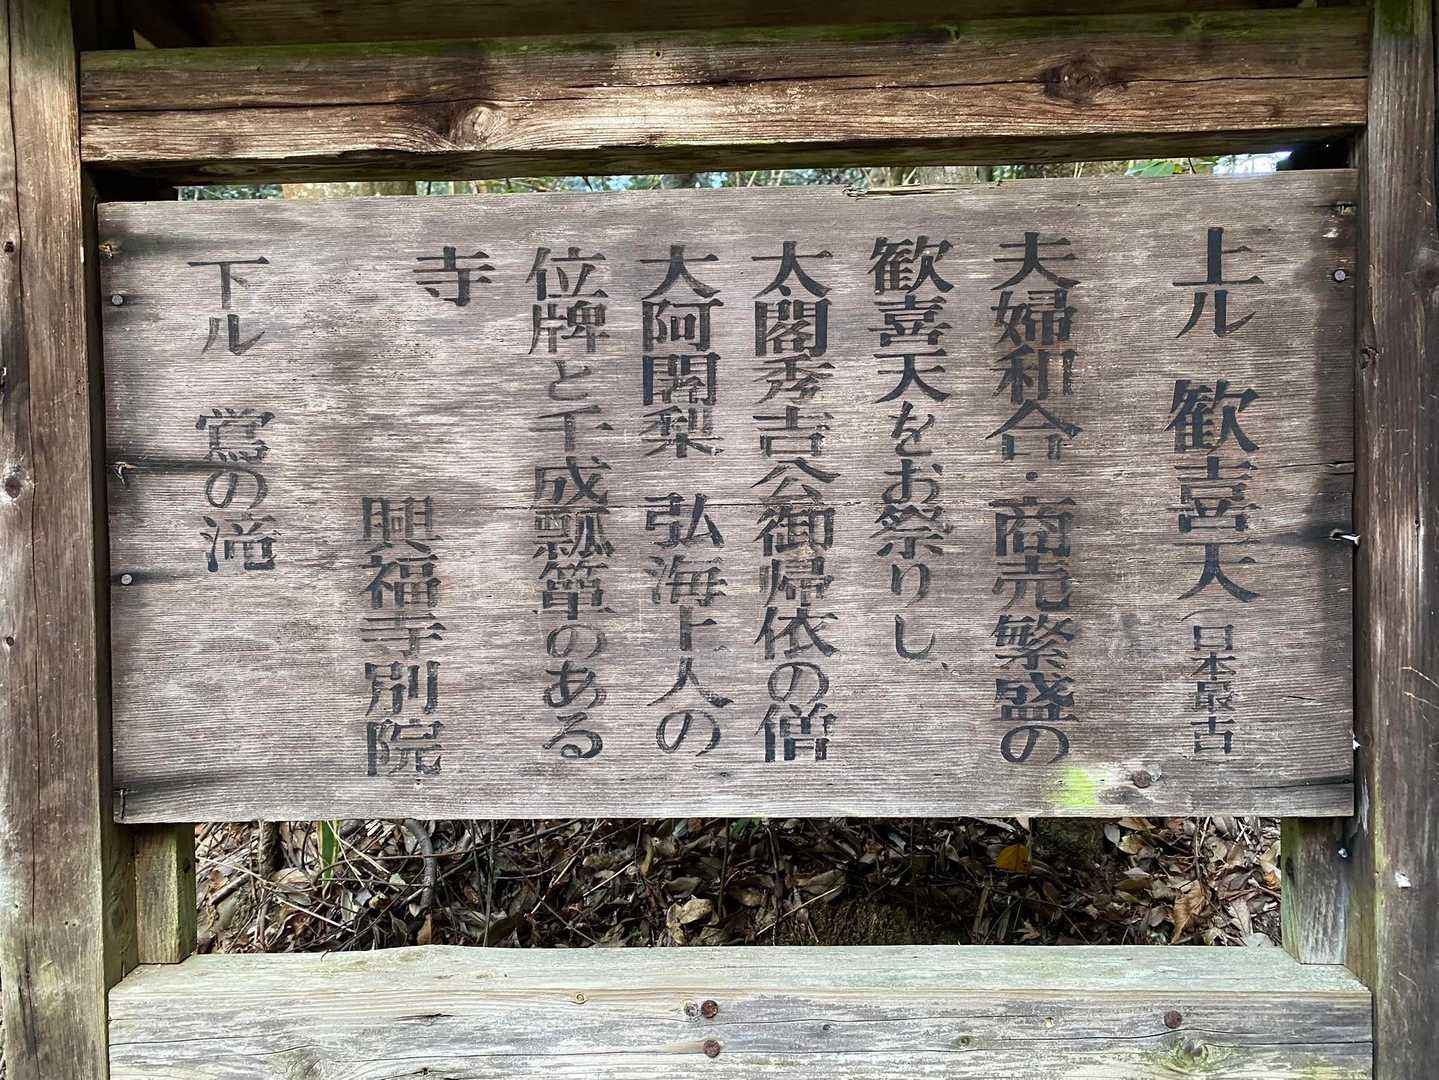 上ル 歓喜天(日本最古
夫婦和合・商売繁盛の
歓喜天をお祭りし、
太閤秀吉公御帰依の僧
大阿闍梨 弘海上人の
位牌と千成瓢箪のある
寺
興福寺別院
下ル 鶯の滝